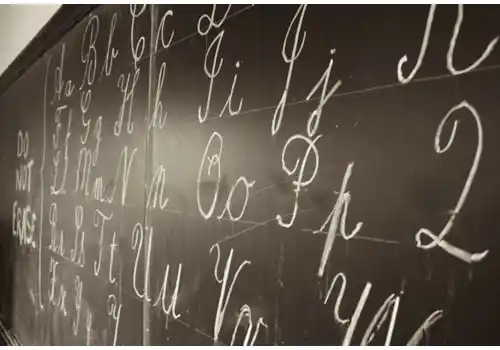 DO
NOT
ERASE
Aa Bb Cc D
Ff Gg Hh Ii Jj K
Ll Mm Nn Oo Pp Q
Rr Ss Tt Uu Vv W
Xx Yy